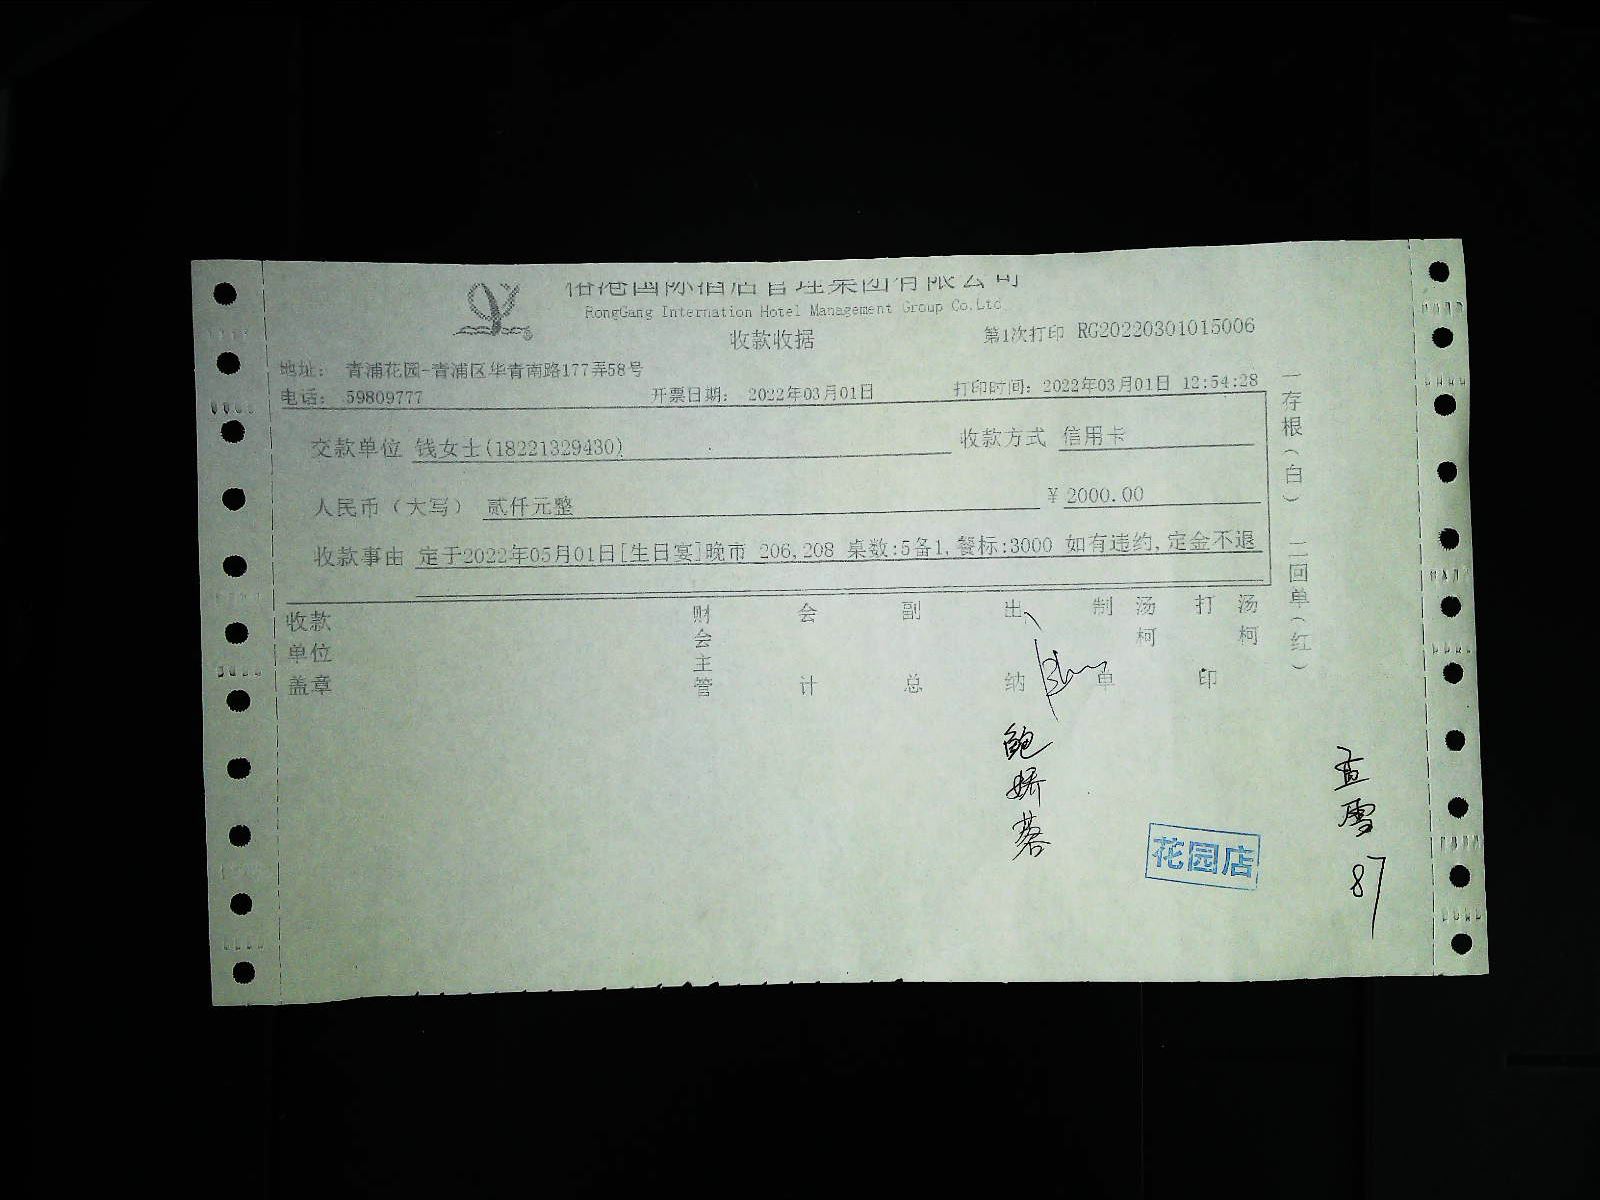 港国际酒店管理集团有限公司
RongGang Internation Hotel Management Group Co.Ltd
收款收据
第1次打印 RG20220301015006
地址： 青浦花园-青浦区华青南路177弄58号
电话： 59809777
开票日期： 2022年03月01日
打印时间：2022年03月01日 12:54:28
交款单位 钱女士(18221329430)
收款方式 信用卡
人民币（大写） 贰仟元整
¥ 2000.00
收款事由 定于2022年05月01日[生日宴]晚市 206,208 桌数:5备1,餐标:3000 如有违约,定金不退
收款单位盖章
财会主管
会计
副总
出纳
制单
汤柯
打印
汤柯
一存根（白） 二回单（红）
鲍娇蓉
孟雪
87
花园店